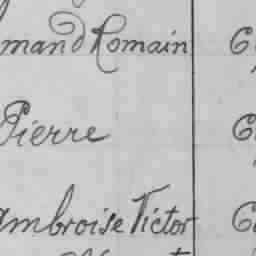 mand Romain
Pierre
ambroise Victor